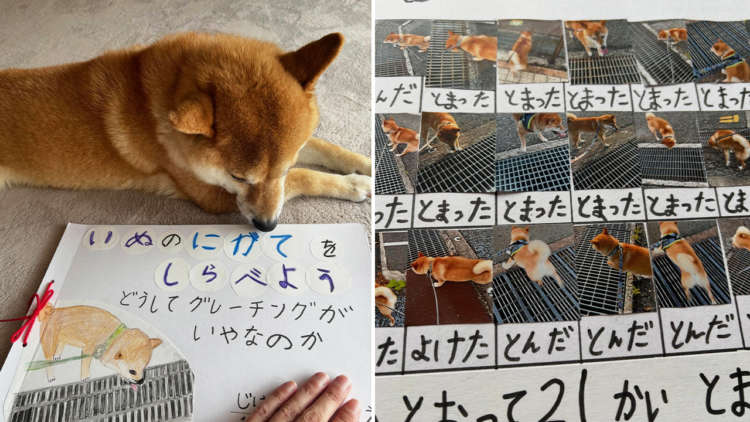 いぬのにがてを
しらべよう
どうしてグレーチングが
いやなのか
んだ とまった とまった とまった とまった とまった
った とまった とまった とまった とまった とま
た よけた とんだ とんだ とんだ
とおって21かい とま